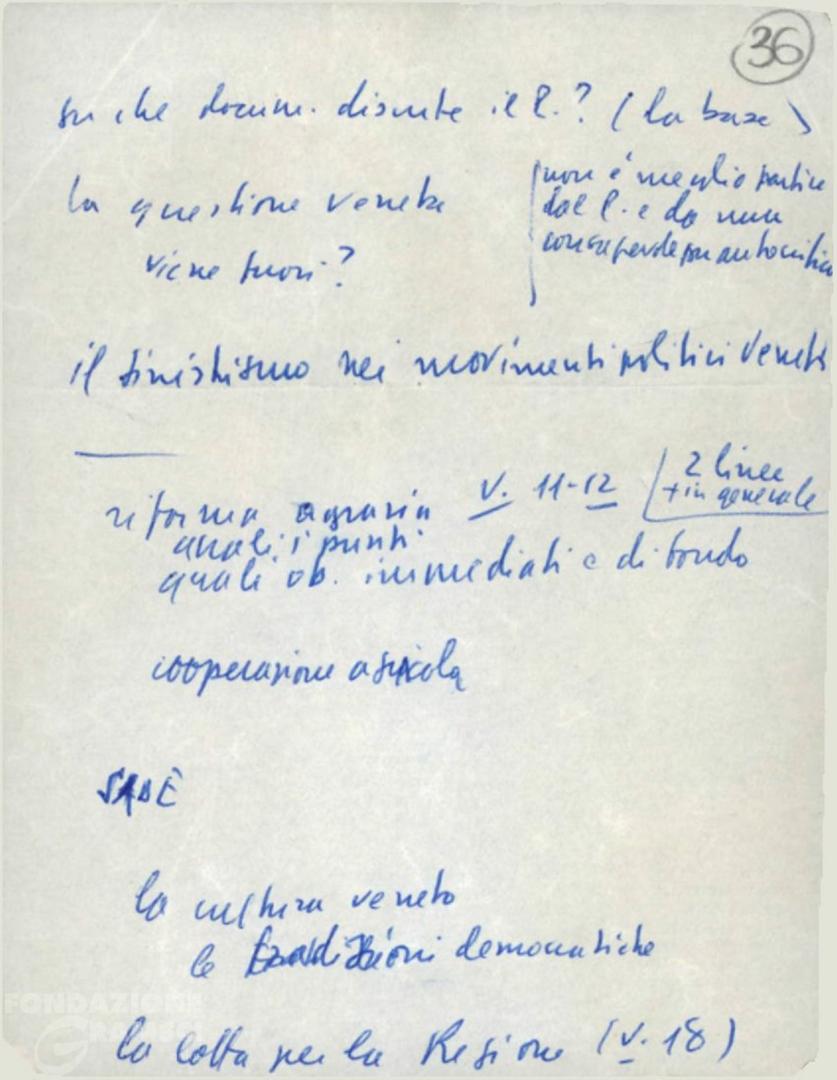 36
su che docum. discute il P.? (la base)
la questione veneta
viene fuori?
non è meglio partire
dal P. e da una
autocritica
il sinistrismo nei movimenti politici veneti
riforma agraria V. 11-12
2 linee
+ in generale
quali i punti
quali ob. immediati e di fondo
cooperazione agricola
SADE
la cultura veneta
le tradizioni democratiche
la lotta per la Regione (V. 18)
FONDAZIONE
GRAMSCI